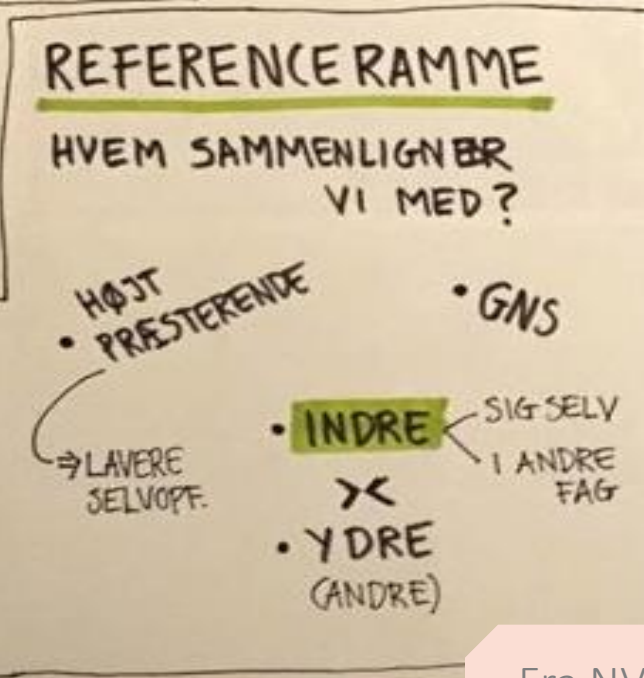 REFERENCERAMME
HVEM SAMMENLIGNER
VI MED?
HØJT
• PRÆSTERENDE
• GNS
⇒ LAVERE
SELVOPF.
• INDRE
SIG SELV
I ANDRE
FAG
><
• YDRE
(ANDRE)
Fra NV